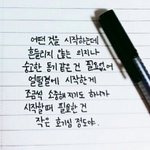 어떤 것을 시작하는데
흔들리지 않는 의지나
숭고한 동기 같은 건 필요없어
얼떨결에 시작한 게
조금씩 소중해지기도 하니까
시작할 때 필요한 건
작은 호기심 정도야.